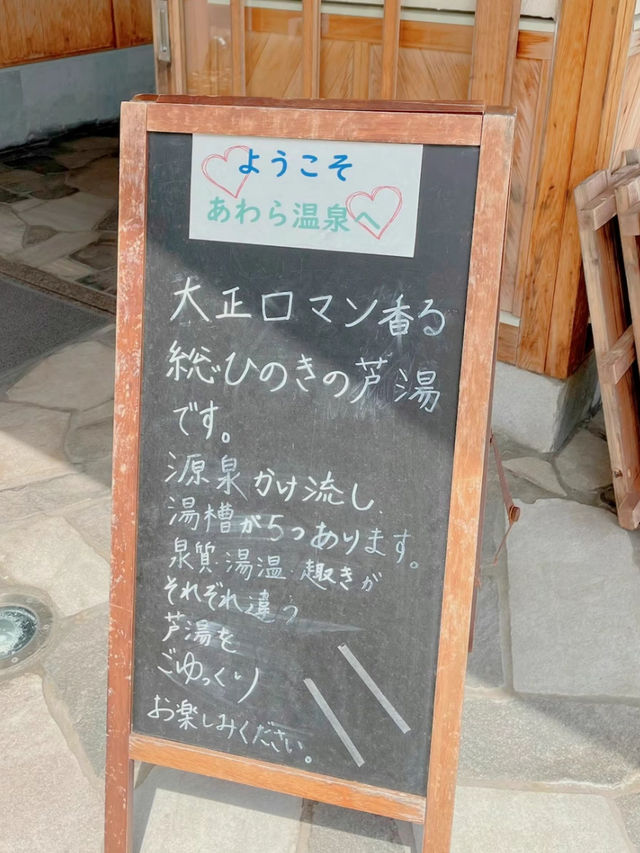 ようこそ
あわら温泉へ
大正ロマン香る
総ひのきの芦湯
です。
源泉かけ流し、
湯槽が5つあります。
泉質・湯温・趣きが
それぞれ違う
芦湯を
ごゆっくり
お楽しみください。